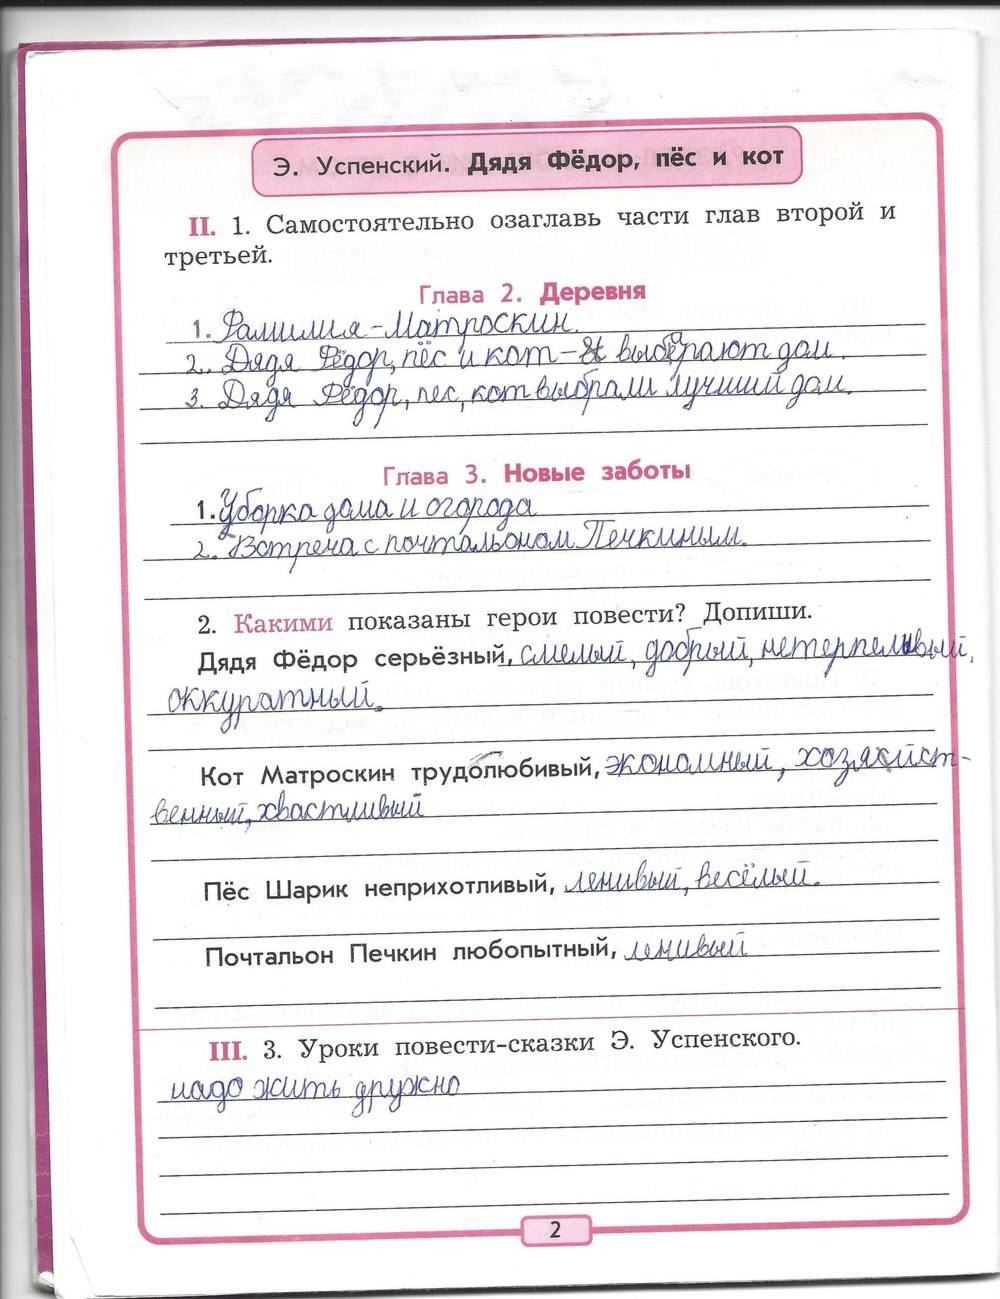 Э. Успенский. Дядя Фёдор, пёс и кот
II. 1. Самостоятельно озаглавь части глав второй и
третьей.
Глава 2. Деревня
1. Фамилия - Матроскин.
2. Дядя Фёдор, пёс и кот - выберают дом.
3. Дядя Фёдор, пес, кот выбрали лучший дом.
Глава 3. Новые заботы
1. Уборка дома и огорода
2. Встреча с почтальоном Печкиным.
2. Какими показаны герои повести? Допиши.
Дядя Фёдор серьёзный, смелый, добрый, нетерпеливый,
оккуратный.
Кот Матроскин трудолюбивый, экономный, хозяйст-
венный, хвастливый
Пёс Шарик неприхотливый, ленивый, весёлый.
Почтальон Печкин любопытный, ленивый
III. 3. Уроки повести-сказки Э. Успенского.
надо жить дружно
2